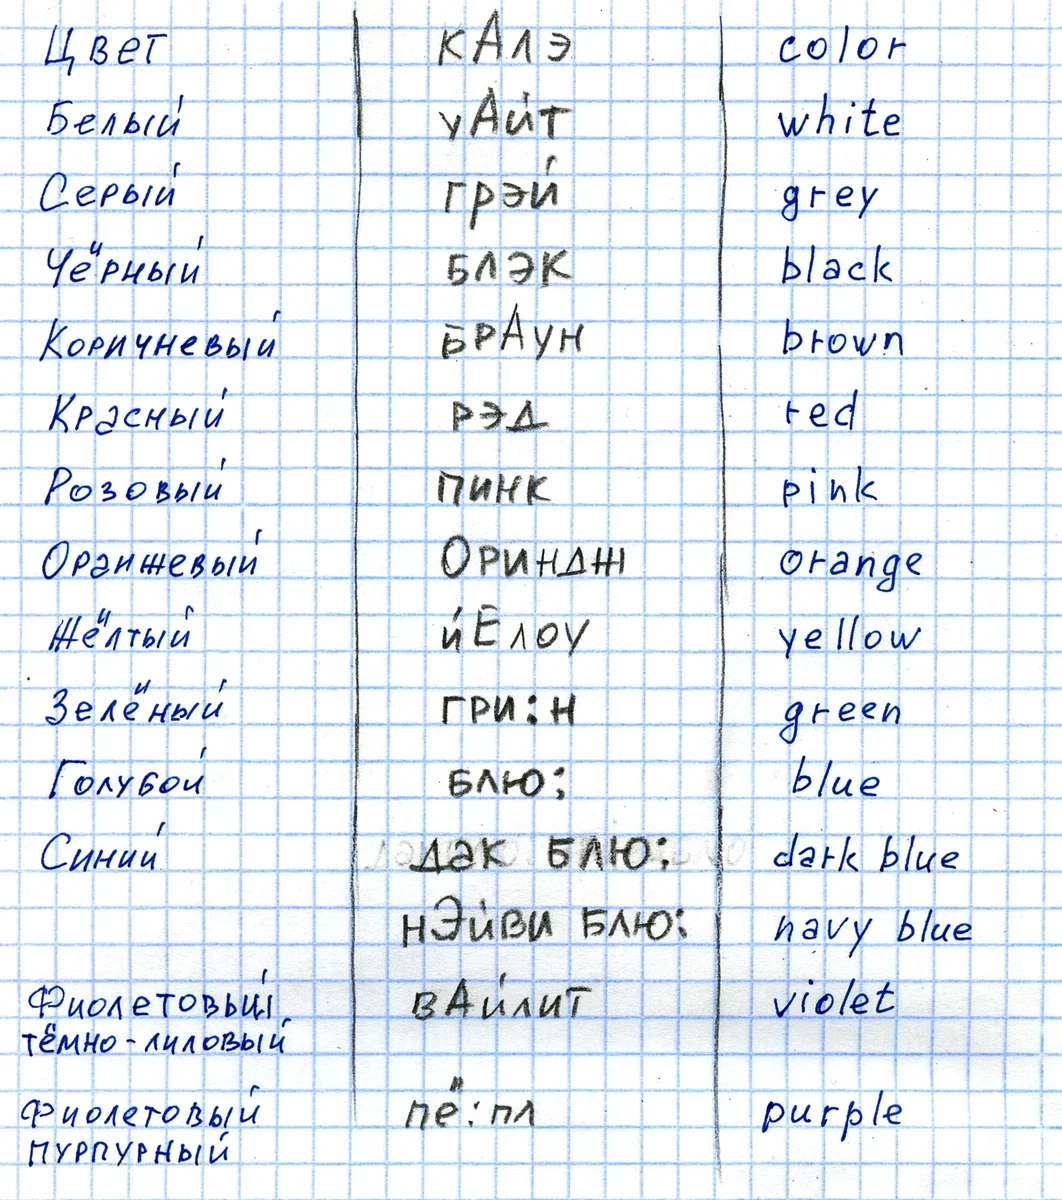 Цвет кАлэ color
Белый уАйт white
Серый грэй grey
Чёрный блэк black
Коричневый брАун brown
Красный рэд red
Розовый пинк pink
Оранжевый Ориндж orange
Жёлтый йЕлоу yellow
Зелёный гри:н green
Голубой блю: blue
Синий дак блю: dark blue
нЭйви блю: navy blue
Фиолетовый вАйлит violet
тёмно-лиловый
Фиолетовый пё:пл purple
пурпурный